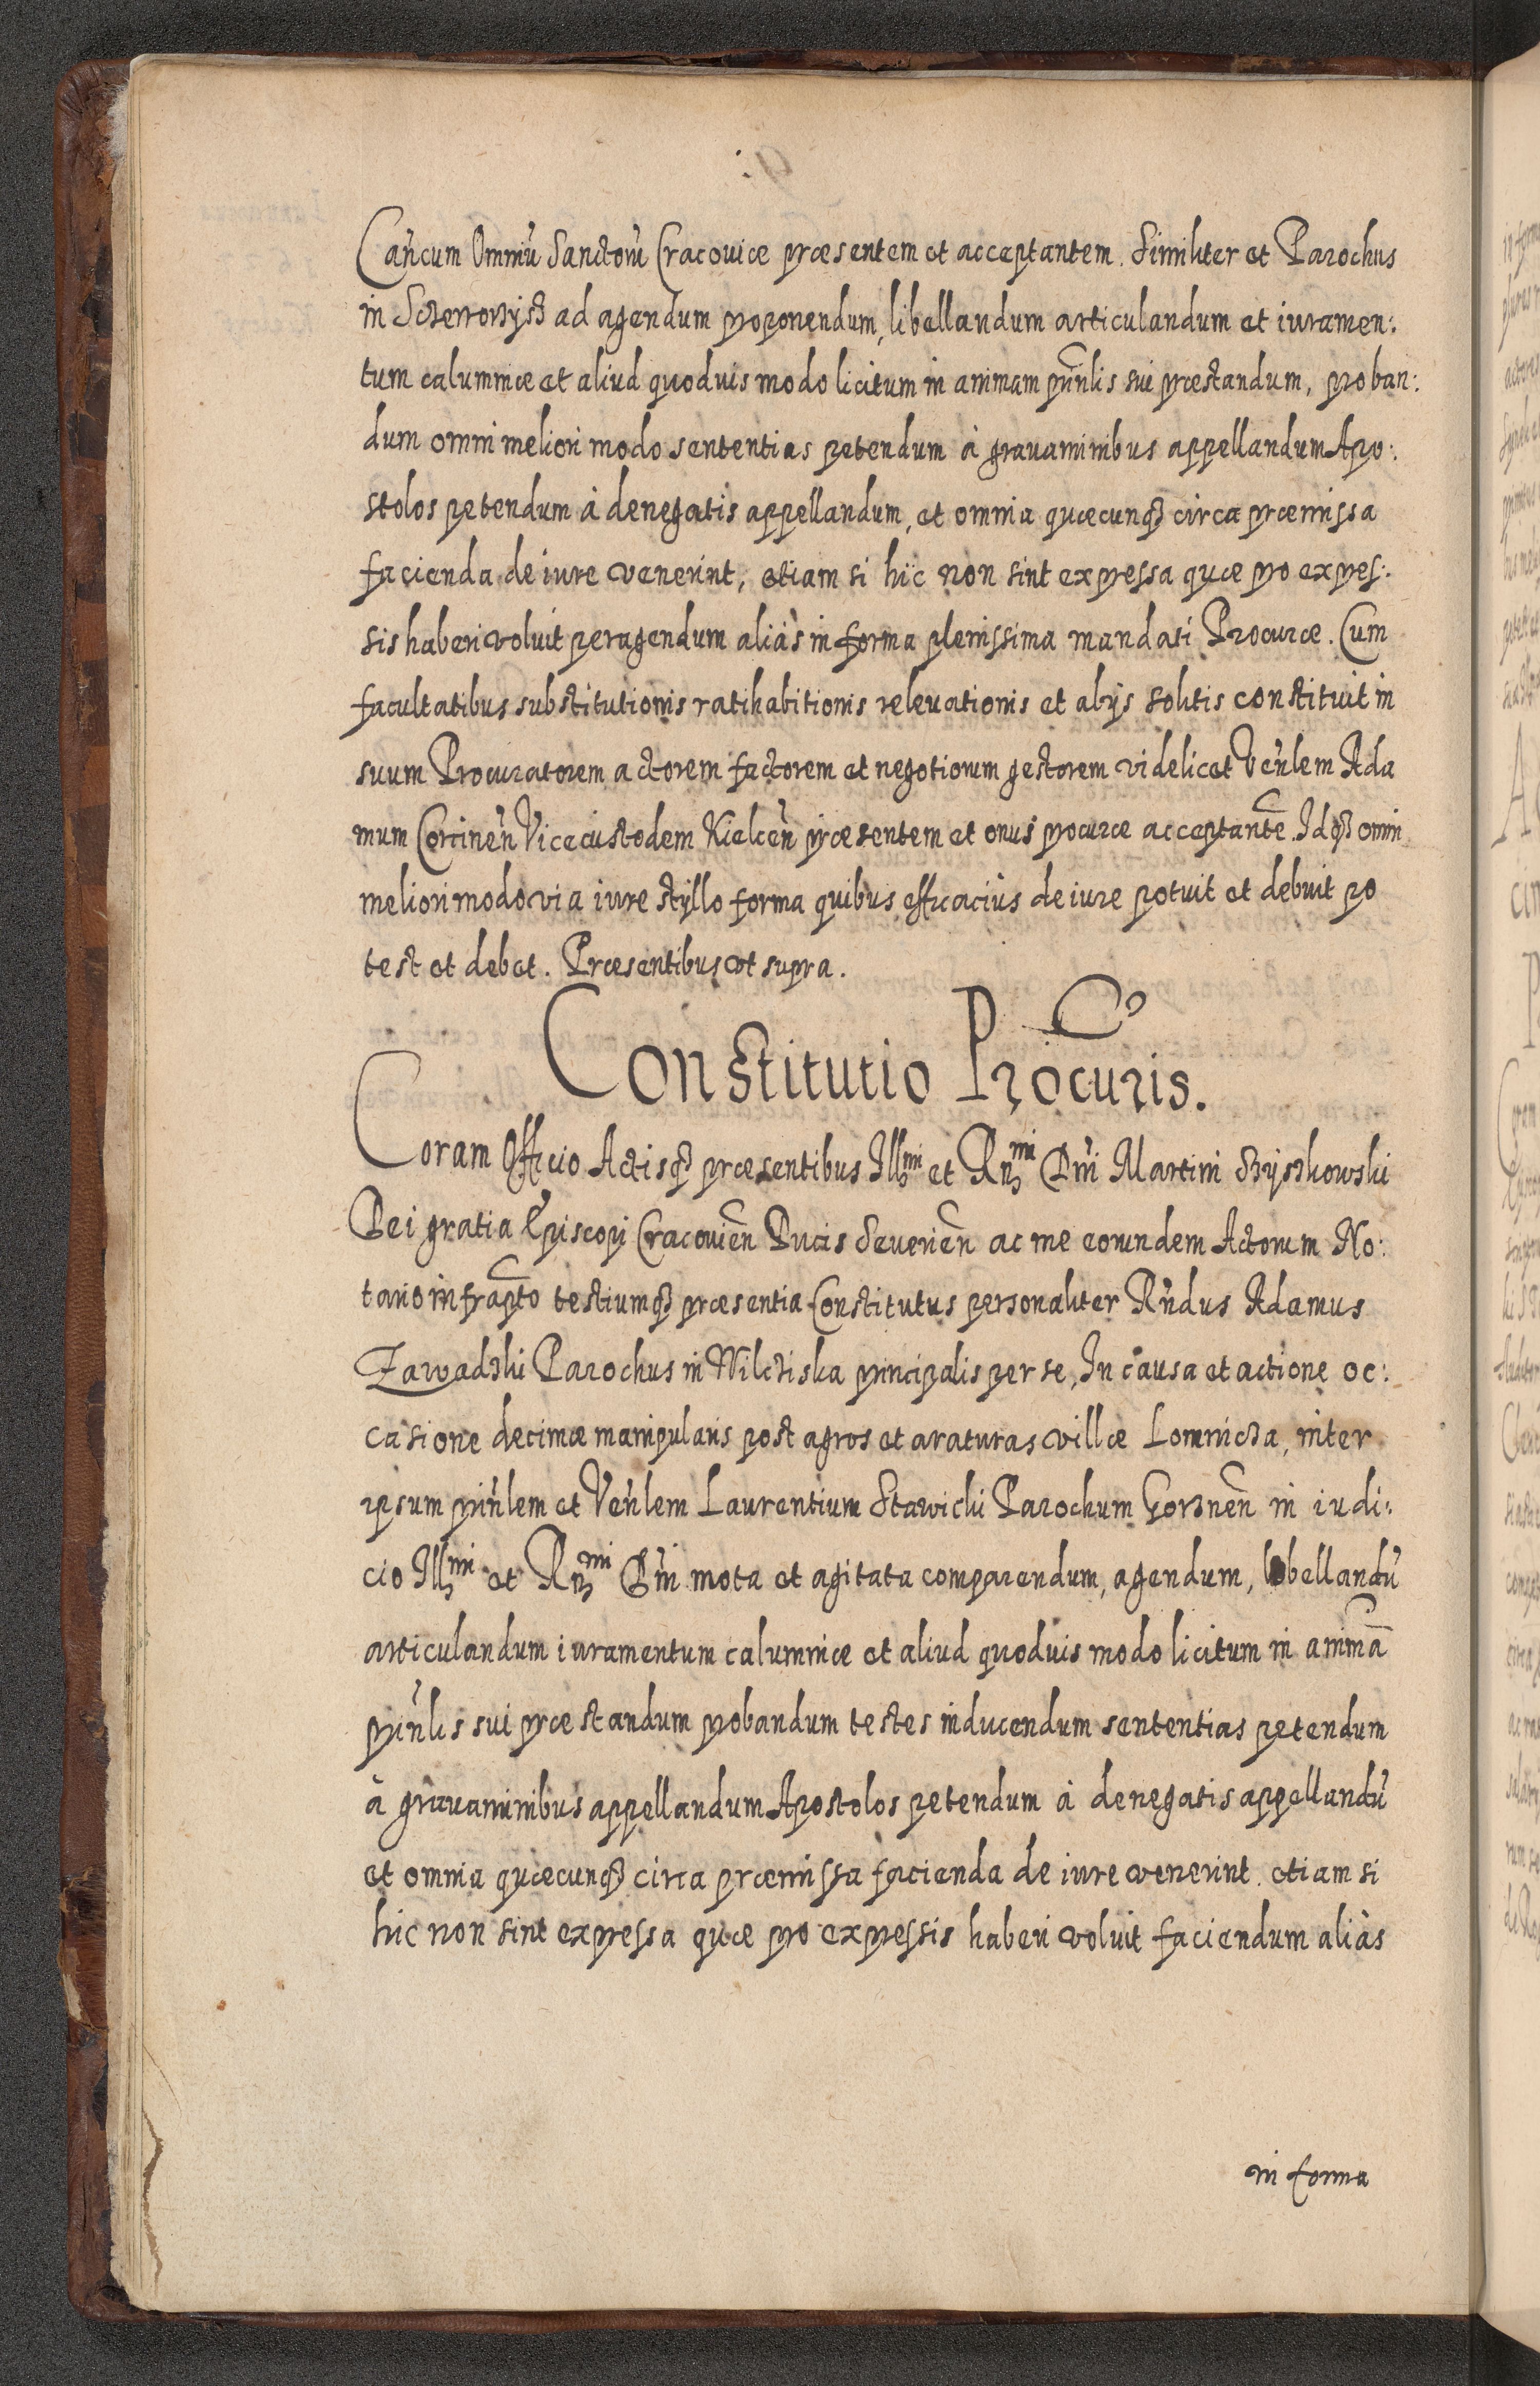 Can̄cum Omniū Sanctorū Cracouiæ præsentem et acceptantem. Similiter et Parochus
in ad agendum proponendum, libellandum articulandum et iuramen:
tum calumniæ et aliud quoduis modo licitum in animam prīnlis sui præstandum, proban:
dum omni meliori modo sententias petendum à grauaminibus appellandum Apo:
stolos petendum à denegatis appellandum, et omnia quæcunq₃ circa præmissa
facienda de iure venerint, etiam si hic non sint expressa quæ pro expres:
sis haberi voluit peragendum aliàs in forma plenissima mandati Procuræ. Cum
facultatibus substitutionis ratihabitionis releuationis et alijs solitis constituit in
suum Procuratorem actorem factorem et negotiorum gestorem videlicet Vēnlem Ada
mum Vicecustodem Kielceñ præsentem et onus procuræ acceptantē. Idq₃ omni
meliori modo via iure styllo forma quibus efficaciùs de iure potuit et debuit po
test et debet. Præsentibus vt supra.
Constitutio Procuris.
Coram Officio Actisq₃ præsentibus Illmi et Rmi Dn̄i Martini Szyszkowski
Dei gratia Episcopi Cracouieñ Ducis Seuerieñ ac me eorundem Actorum No:
tario infrapto testiumq₃ præsentia Constitutus personaliter Rn̄dus Adamus
Zawadzki Parochus in Wilcziska principalis per se, In causa et actione oc:
casione decimæ manipularis post agros et araturas villæ Lomnicza, inter
ipsum prin̄lem et Ven̄lem Laurentium Stawicki Parochum Gorzneñ in iudi:
cio Illmi et Rmi Dn̄i mota et agitata comparendum, agendum, libellandū
articulandum iuramentum calumniæ et aliud quoduis modo licitum in animā
prin̄lis sui præstandum probandum testes inducendum sententias petendum
à grauaminibus appellandum Apostolos petendum à denegatis appellandū
et omnia quæcunq₃ circa præmissa facienda de iure venerint. etiam si
hic non sint expressa quæ pro expressis haberi voluit faciendum aliàs
in forma